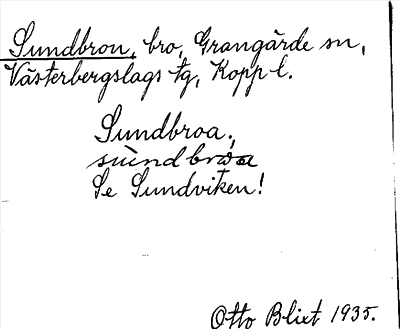 Sundbron, bro, Grangärde sn,
Västerbergslags tg, Kopp l.
Sundbroa,
Se Sundviken!
Otto Blixt 1935.